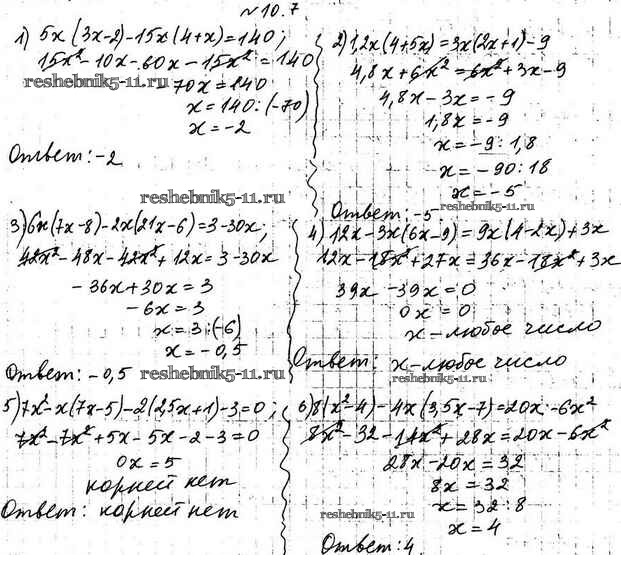 №10.7
1) 5x(3x-2)-15x(4+x)=140;
15x²-10x-60x-15x²=140
reshebnik5-11.ru
-70x=140
x=140:(-70)
x=-2
Ответ:-2
2) 1,2x(4+5x)=3x(2x+1)-9
4,8x+6x²=6x²+3x-9
4,8x-3x=-9
1,8x=-9
x=-9:1,8
x=-90:18
x=-5
reshebnik5-11.ru
Ответ:-5
reshebnik5-11.ru
3) 6x(7x-8)-2x(21x-6)=3-30x;
42x²-48x-42x²+12x=3-30x
-36x+30x=3
-6x=3
x=3:(-6)
x=-0,5
Ответ:-0,5
reshebnik5-11.ru
4) 12x-3x(6x-9)=9x(4-2x)+3x
12x-18x²+27x=36x-18x²+3x
39x-39x=0
0x=0
x-любое число
Ответ: x-любое число
5) 7x²-x(7x-5)-2(2,5x+1)-3=0;
7x²-7x²+5x-5x-2-3=0
0x=5
корней нет
Ответ: корней нет
6) 8(x²-4)-4x(3,5x-7)=20x-6x²
8x²-32-14x²+28x=20x-6x²
28x-20x=32
8x=32
x=32:8
reshebnik5-11.ru
x=4
Ответ:4